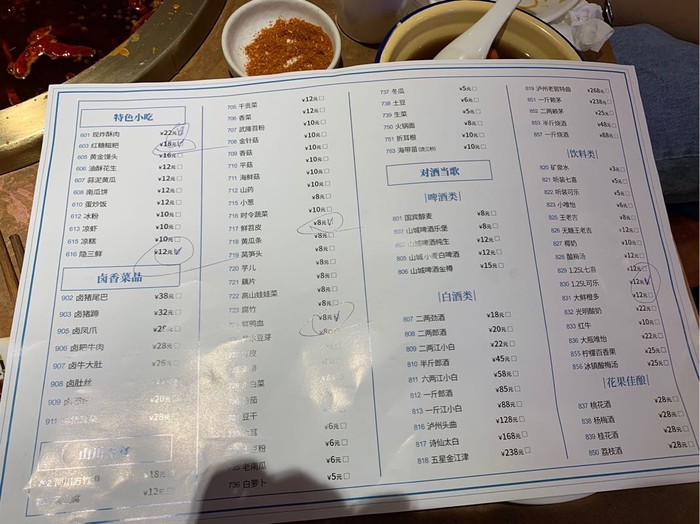 特色小吃
601 现炸酥肉 ¥22元
603 红糖糍粑 ¥18元
605 黄金馒头 ¥16元
606 油酥花生 ¥12元
607 蒜泥黄瓜 ¥12元
608 南瓜饼 ¥12元
610 蛋炒饭 ¥12元
612 冰粉 ¥10元
613 凉虾 ¥10元
615 凉糕 ¥10元
616 隐三鲜 ¥12元
卤香菜品
902 卤猪尾巴 ¥38元
903 卤猪蹄 ¥32元
905 卤凤爪
906 卤耙牛肉 ¥28元
907 卤牛大肚
908 卤肚丝
909
911
¥12元
705 干贡菜 ¥12元
706 香菜 ¥10元
707 武隆苕粉 ¥10元
708 金针菇 ¥10元
709 香菇 ¥10元
710 平菇 ¥10元
711 海鲜菇 ¥10元
712 山药 ¥10元
715 小葱 ¥8元
716 时令蔬菜 ¥10元
717 鲜苕皮 ¥8元
718 黄瓜条 ¥8元
719 莴笋头 ¥8元
720 芋儿 ¥8元
721 藕片 ¥8元
722 高山娃娃菜 ¥8元
723 腐竹 ¥8元
鲜鸭血 ¥8元
豆干
¥6元
¥6元
老南瓜 ¥6元
736 白萝卜 ¥5元
737 冬瓜 ¥5元
738 土豆 ¥6元
739 生菜 ¥5元
750 火锅面 ¥8元
751 折耳根 ¥10元
753 海带苗 ¥10元
对酒当歌
啤酒类
801 国宾醇麦 ¥8元
802 山城啤酒乐堡 ¥8元
山城啤酒纯生 ¥12元
805 山城小麦白啤酒 ¥12元
806 山城啤酒金樽 ¥15元
白酒类
807 二两劲酒 ¥18元
808 二两郎酒 ¥20元
809 二两江小白 ¥22元
810 半斤郎酒 ¥45元
811 六两江小白 ¥58元
812 一斤郎酒 ¥85元
813 一斤江小白 ¥88元
816 泸州头曲 ¥128元
817 诗仙太白 ¥168元
818 五星金江津 ¥238元
819 泸州老窖特曲 ¥268元
851 一斤赖茅 ¥238元
852 二两赖茅 ¥25元
853 半斤烧酒 ¥48元
857 一斤烧酒 ¥88元
饮料类
820 矿泉水 ¥3元
821 听装七喜 ¥5元
822 听装可乐 ¥5元
823 小唯怡 ¥6元
825 王老吉 ¥8元
826 无糖王老吉 ¥8元
827 椰奶 ¥10元
828 酸梅汤 ¥12元
829 1.25L七喜 ¥12元
830 1.25L可乐 ¥12元
831 大鲜橙多 ¥12元
832 光明酸奶 ¥22元
833 红牛 ¥10元
836 大瓶唯怡 ¥22元
855 柠檬百香果 ¥25元
856 冰镇酸梅汤 ¥25元
花果佳酿
837 桃花酒 ¥28元
838 杨梅酒 ¥28元
839 桂花酒 ¥28元
850 荔枝酒 ¥28元